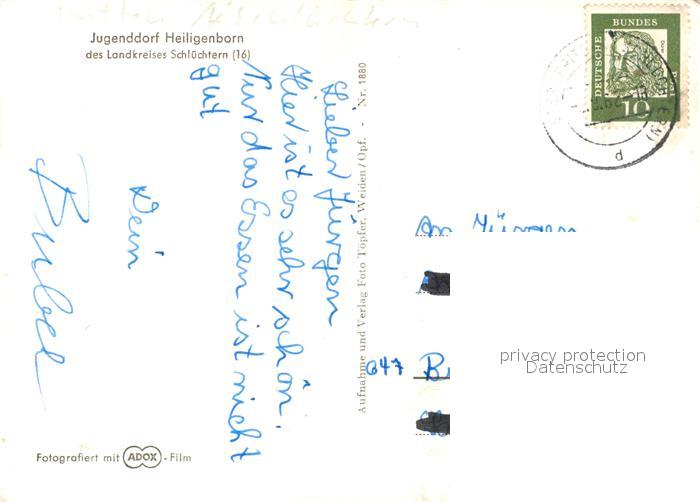 Jugenddorf Heiligenborn
des Landkreises Schlüchtern (16)
Lieber Jürgen
Hier ist es sehr schön.
Nur das Essen ist nicht
gut
Dein
Aufnahme und Verlag Foto Topfer, Weiden/Opf. - Nr. 1880
DEUTSCHE BUNDES
10
An Jürgen
647 B
privacy protection
Datenschutz
Fotografiert mit ADOX - Film